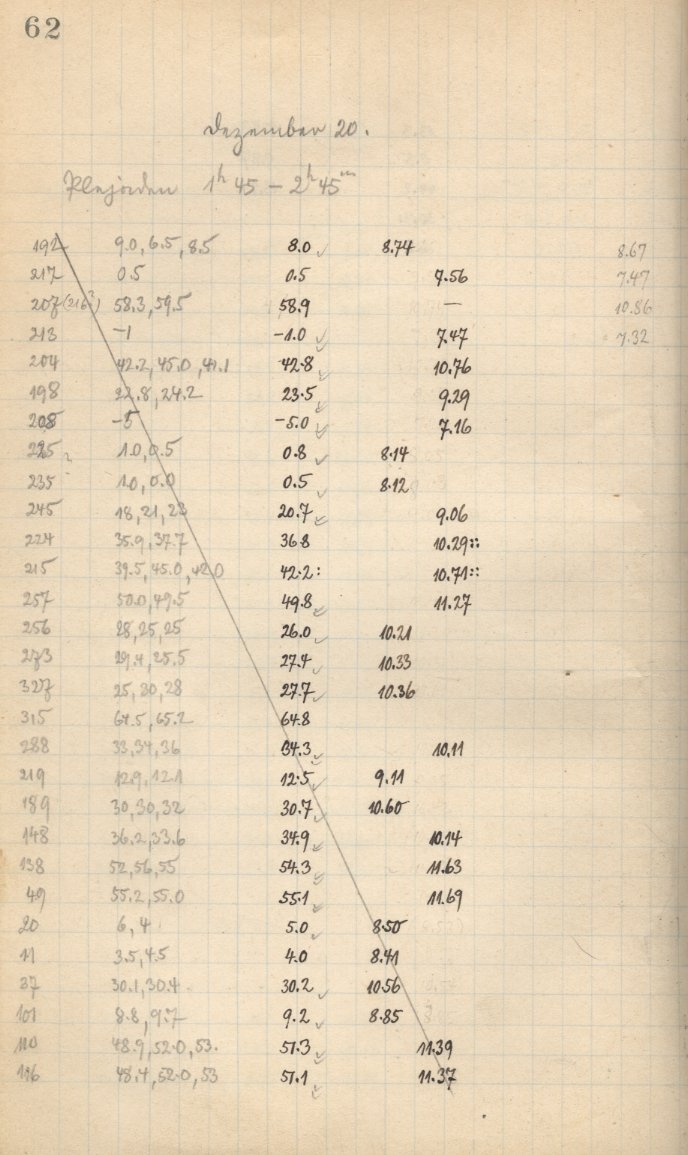 62
Dezember 20.
Plejaden 1h 45 – 2h 45m
192 9.0, 6.5, 8.5 8.0 8.74 8.67
217 0.5 0.5 7.56 7.47
207 (216?) 58.3, 59.5 58.9 — 10.86
213 –1 –1.0 7.47 7.32
204 42.2, 45.0, 41.1 42.8 10.76
198 22.8, 24.2 23.5 9.29
208 –5 –5.0 7.16
225 1.0, 0.5 0.8 8.14
235 1.0, 0.0 0.5 8.12
245 18, 21, 23 20.7 9.06
224 35.9, 37.7 36.8 10.29::
215 39.5, 45.0, 42.0 42.2: 10.71::
257 50.0, 49.5 49.8 11.27
256 28, 25, 25 26.0 10.21
273 29.4, 25.5 27.4 10.33
327 25, 30, 28 27.7 10.36
315 64.5, 65.2 64.8
288 33, 34, 36 34.3 10.11
219 12.9, 12.1 12.5 9.11
189 30, 30, 32 30.7 10.60
148 36.2, 33.6 34.9 10.14
138 52, 56, 55 54.3 11.63
49 55.2, 55.0 55.1 11.69
20 6, 4 5.0 8.50
11 3.5, 4.5 4.0 8.41
37 30.1, 30.4 30.2 10.56
101 8.8, 9.7 9.2 8.85
110 48.9, 52.0, 53. 51.3 11.39
116 48.4, 52.0, 53 51.1 11.37